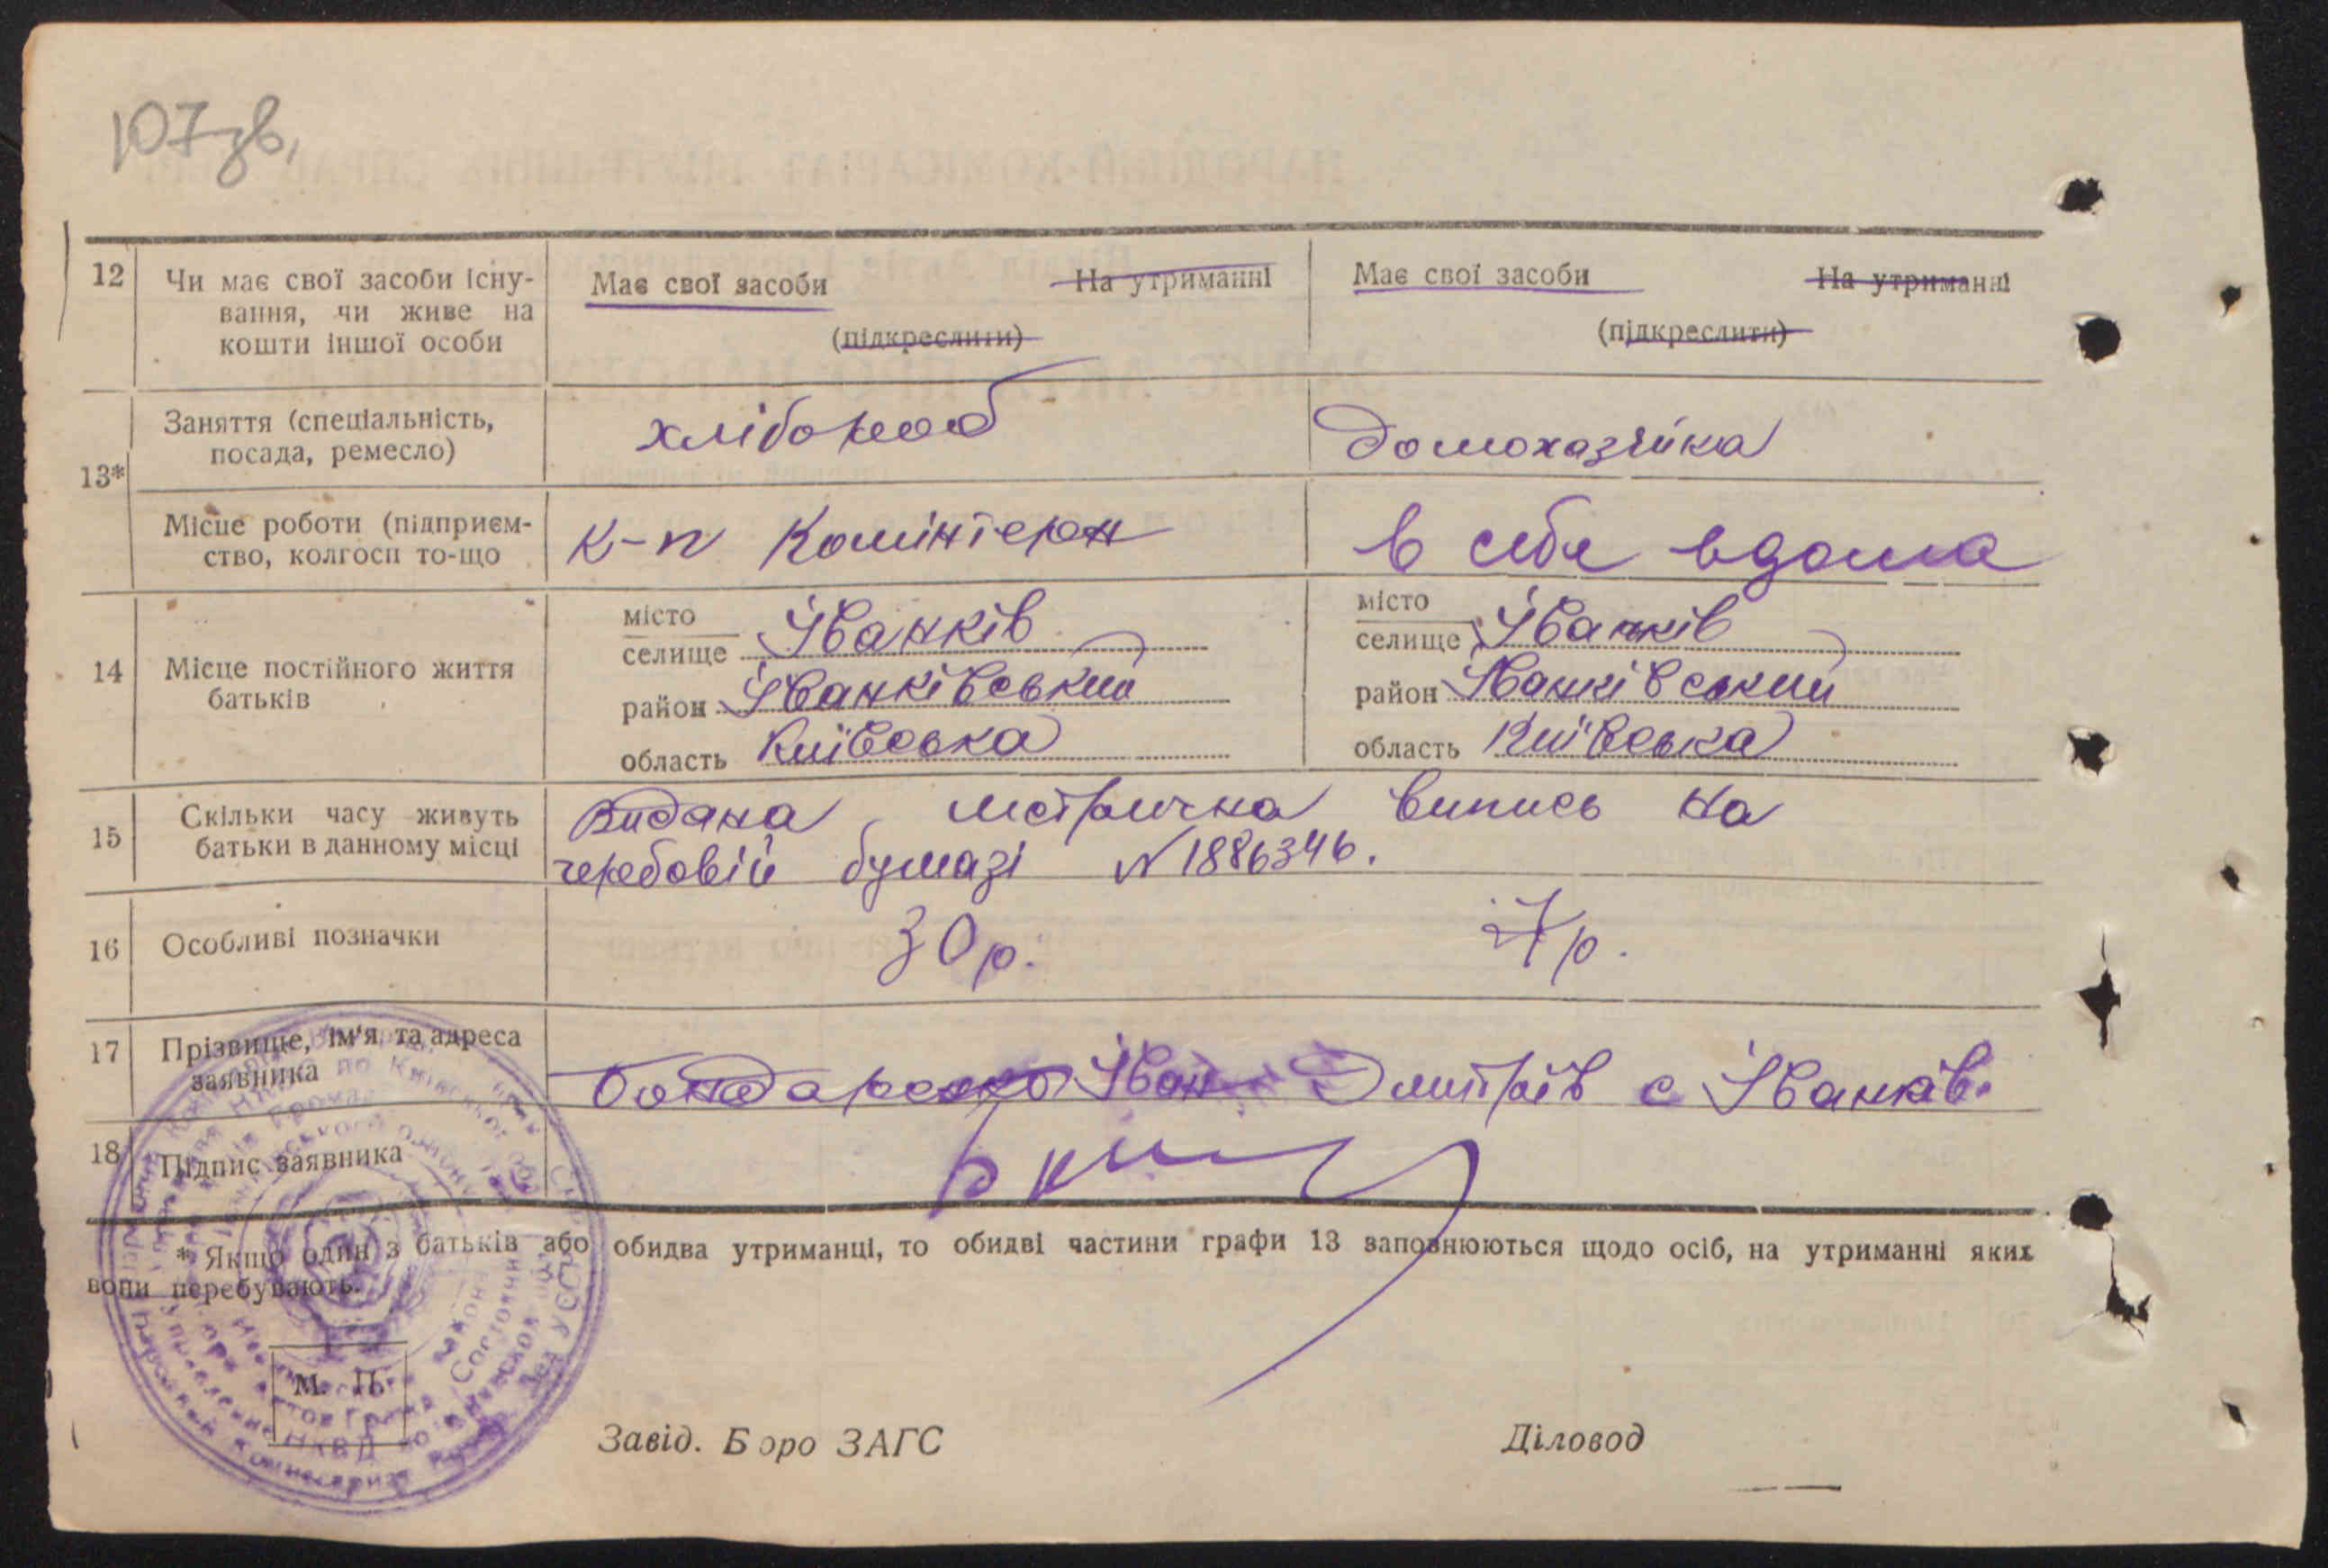 107 зв.
12 Чи має свої засоби існу-
вання, чи живе на
кошти іншої особи
Має свої засоби На утриманні
(підкреслити)
Має свої засоби На утриманні
(підкреслити)
13*
Заняття (спеціальність,
посада, ремесло)
хлібороб
домохазяйка
Місце роботи (підприєм-
ство, колгосп то-що
к-п Комінтерн
в себе вдома
14 Місце постійного життя
батьків
місто
селище Іванків
район Іванківський
область Київська
місто
селище Іванків
район Іванківський
область Київська
15 Скільки часу живуть
батьки в данному місці
Видана метрична випись на
гербовій бумазі № 1886346.
16 Особливі позначки
30 р. 7 р.
17 Прізвище, ім'я та адреса
заявника
Бондаренко Іван Дмитрів с Іванків.
18 Підпис заявника
* Якщо один з батьків або обидва утриманці, то обидві частини графи 13 заповнюються щодо осіб, на утриманні яких
вони перебувають.
М. П.
Завід. Бюро ЗАГС Діловод